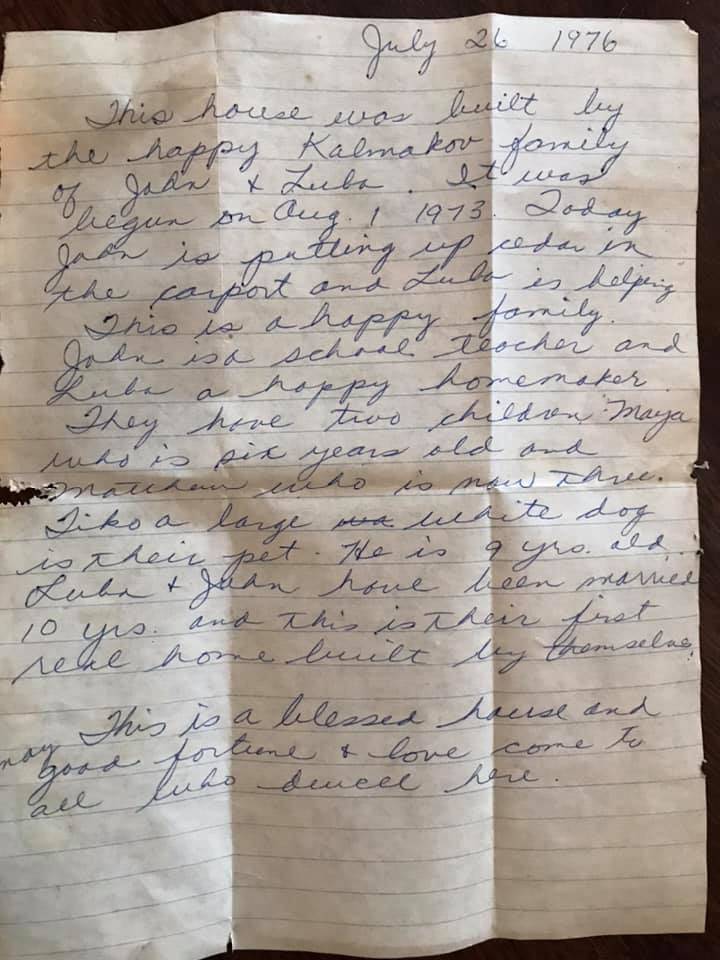 July 26 1976
This house was built by
the happy Kalmakov family
of John & Luba. It was
begun on Aug. 1 1973. Today
John is putting up cedar in
the carport and Luba is helping
This is a happy family.
John is a school teacher and
Luba a happy homemaker.
They have two children Maya
who is six years old and
Matthew who is now three.
Tiko a large wa white dog
is their pet. He is 9 yrs. old.
Luba & John have been married
10 yrs. and this is their first
real home built by themselves.
This is a blessed house and
may good fortune & love come to
all who dwell here.